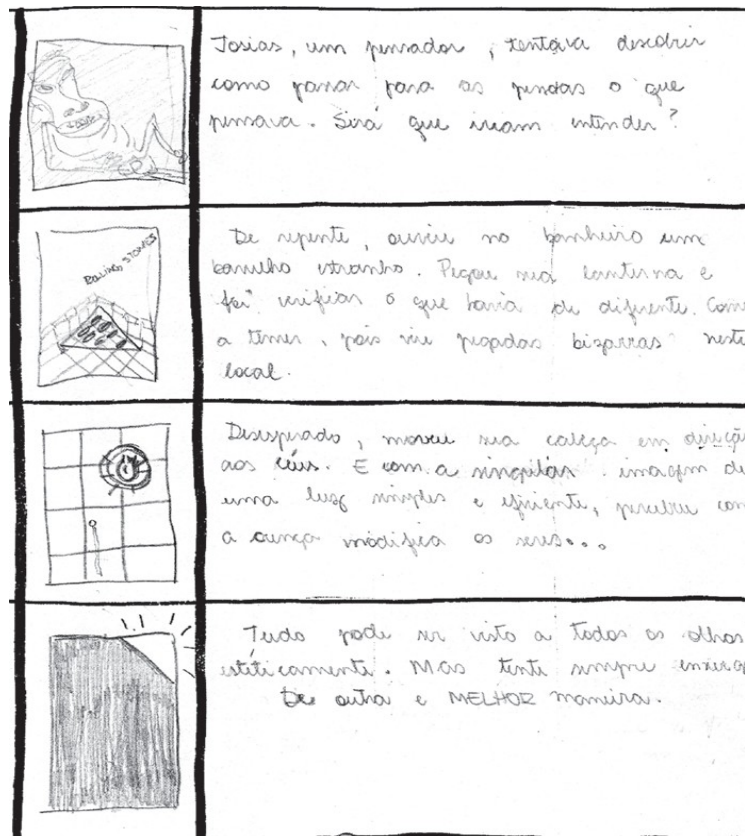 Josias, um pensador, tentava descobrir
como passar para as pessoas o que
pensava. Será que iriam entender?
ROLLING STONES
De repente, ouviu no banheiro um
barulho estranho. Pegou sua lanterna e
foi verificar o que havia de diferente. Com
a temer, pois viu pegadas bizarras neste
local.
Desesperado, moveu sua cabeça em direção
aos céus. E com a singular imagem de
uma luz simples e eficiente, percebeu com
a crença modifica os seres...
Tudo pode ser visto a todos os olhos
esteticamente. Mas tente sempre
De outra e MELHOR maneira.